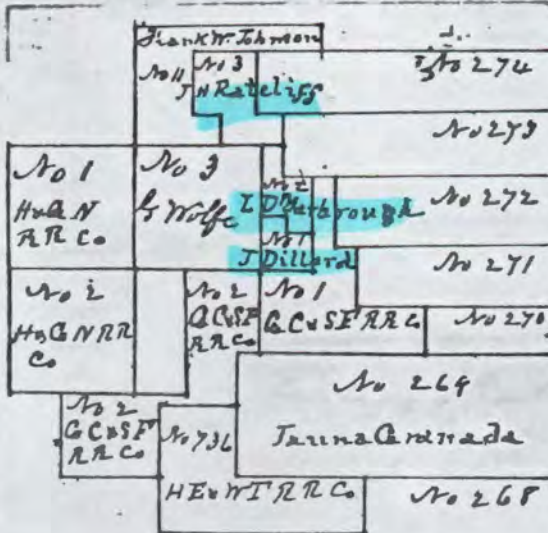 Frank W. Johnson
No 11
No 3
J H Ratcliff
No 274
No 273
No 1
H & G N
R R Co
No 3
G Wolfe
No 2
L D Yarbrough
No 1
J Dillard
No 272
No 271
No 2
H & G N R R
Co
No 2
G C & S F
R R Co
No 1
G C & S F R R Co
No 270
No 269
No 2
G C & S F
R R Co
No 736
H E & W T R R Co
No 268